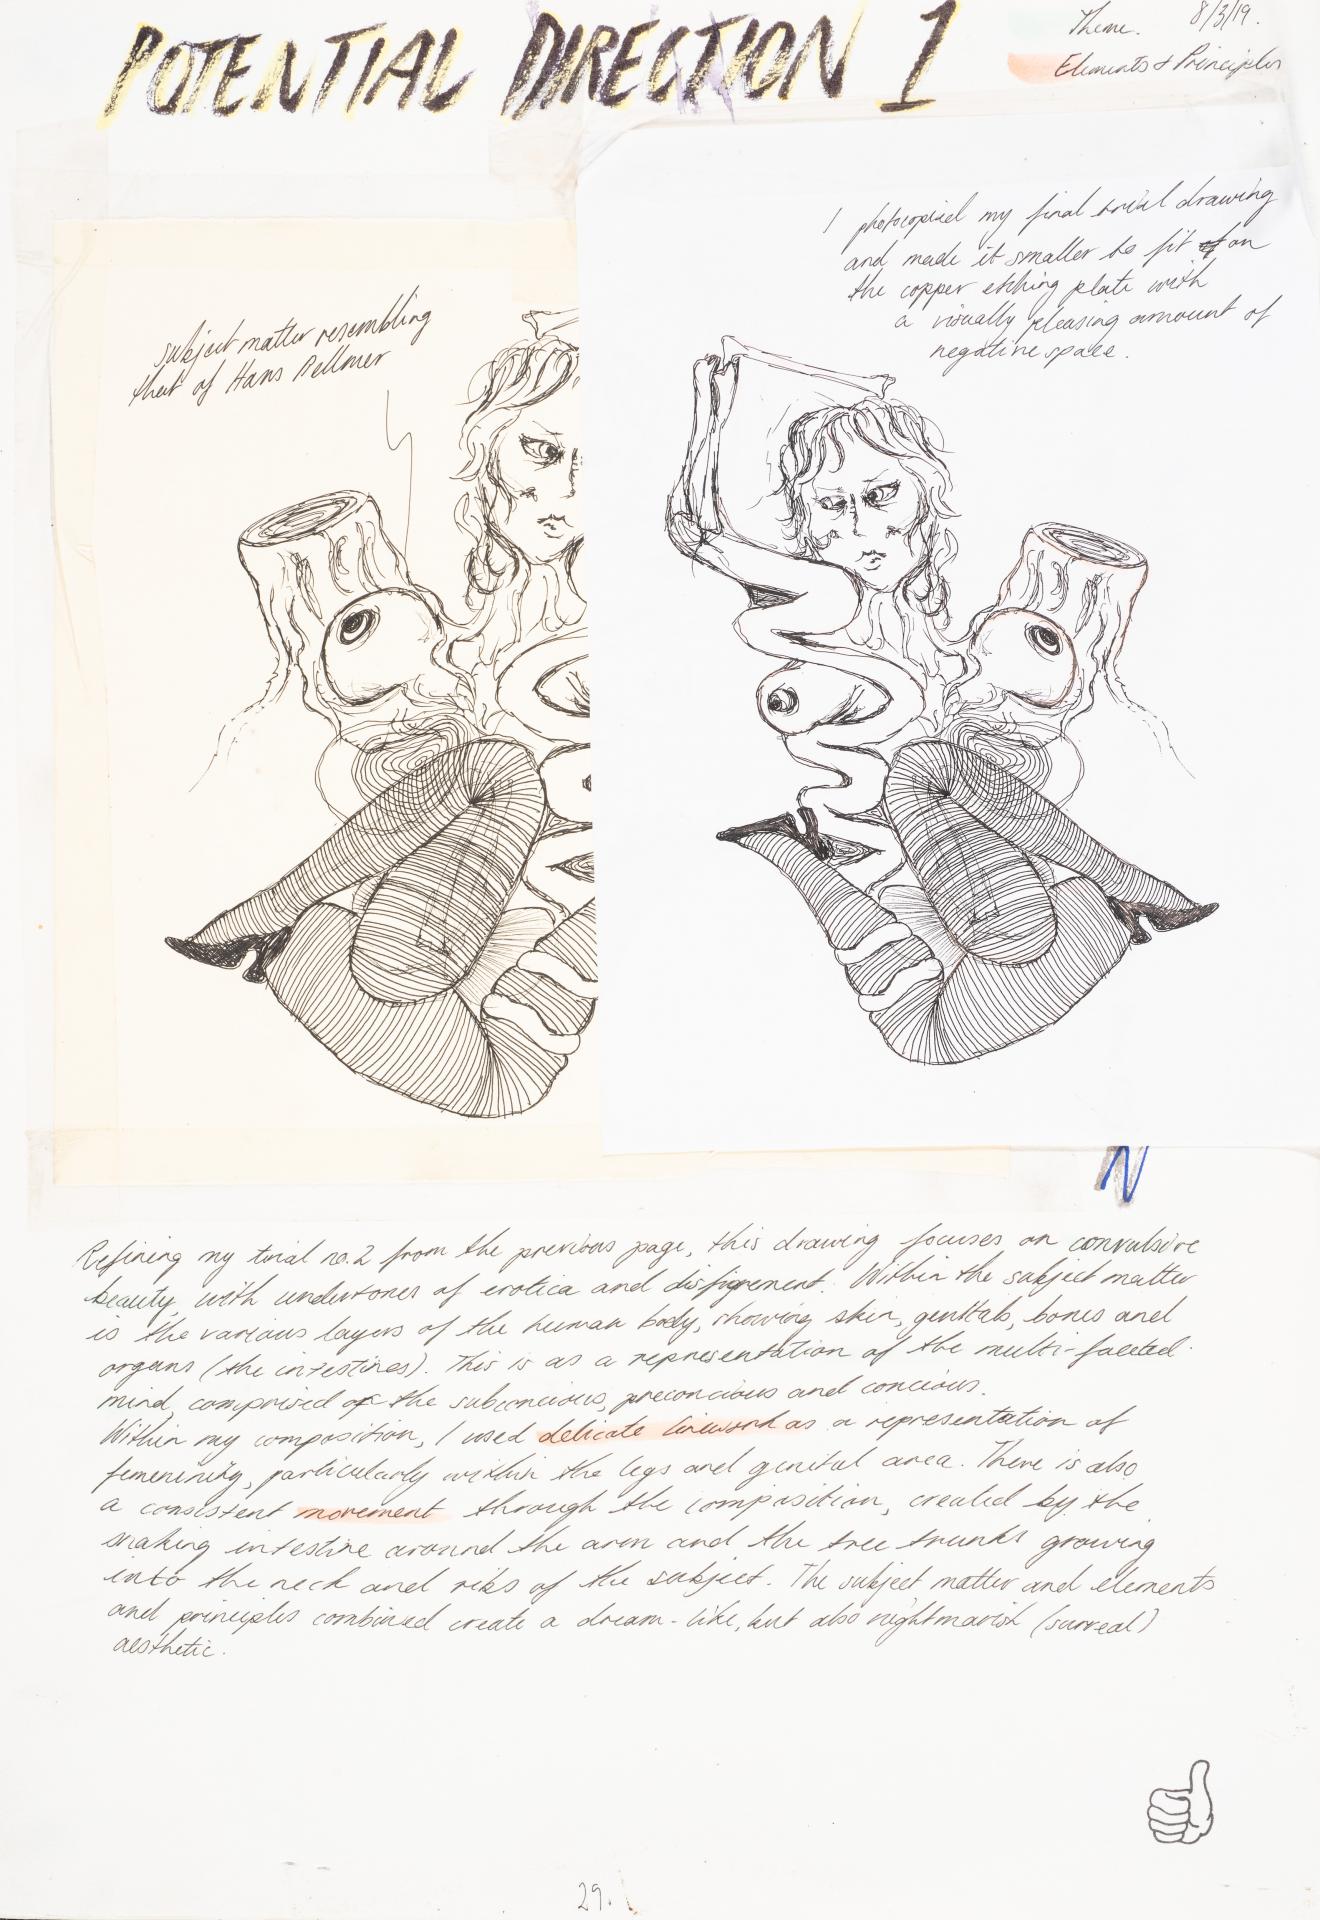 POTENTIAL DIRECTION 1
Theme. 8/3/19.
Elements + Principles
I photocopied my final trial drawing
and made it smaller to fit on
the copper etching plate with
a visually pleasing amount of
negative space.
subject matter resembling
that of Hans Bellmer
N
Refining my trial no.2 from the previous page, this drawing focuses on convulsive
beauty, with undertones of erotica and disfigrement. Within the subject matter
is the various layers of the human body, showing skin, genitals, bones and
organs (the intestines). This is as a representation of the multi-faceted
mind, comprised of the subconcious, preconcious and concious.
Within my composition, I used delicate linework as a representation of
femeninity, particularly within the legs and genital area. There is also
a consistent movement through the composition, created by the
snaking intestine around the arm and the tree trunks growing
into the neck and ribs of the subject. The subject matter and elements
and principles combined create a dream-like, but also nightmarish (surreal)
aesthetic.
29.